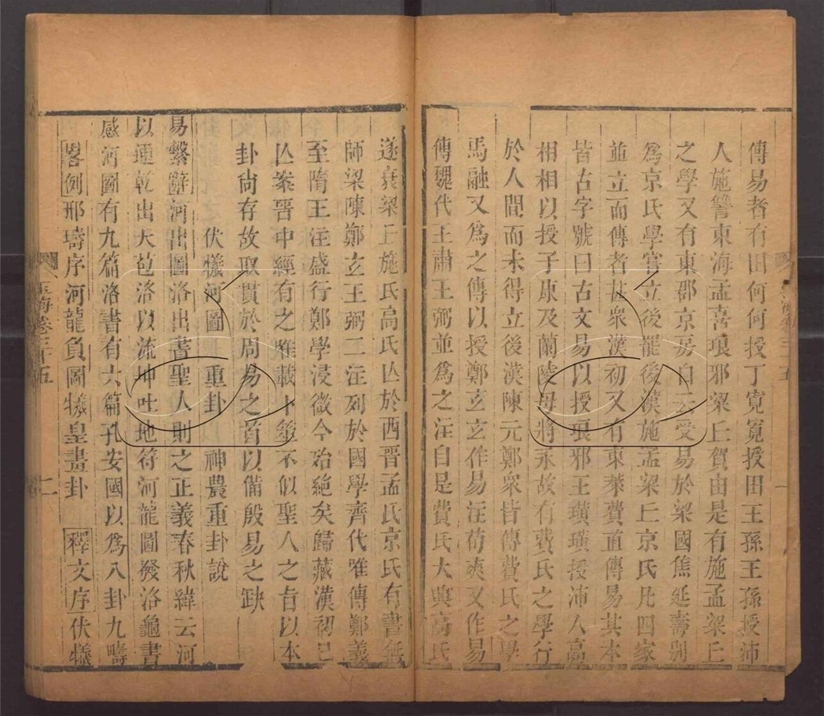 傳易者有田何何授丁寬寬授田王孫王孫授沛
人施讐東海孟喜琅邪梁丘賀由是有施孟梁丘
之學又有東郡京房自云受易於梁國焦延壽別
爲京氏學嘗立後罷後漢施孟梁丘京氏凡四家
並立而傳者甚衆漢初又有東萊費直傳易其本
皆古字號曰古文易以授琅邪王璜璜授沛人高
相相以授子康及蘭陵毋將永故有費氏之學行
於人間而未得立後漢陳元鄭衆皆傳費氏之學
馬融又爲之傳以授鄭玄玄作易注荀爽又作易
傳魏代王肅王弼並爲之注自是費氏大興高氏
遂衰梁丘施氏高氏亾於西晉孟氏京氏有書無
師梁陳鄭玄王弼二注列於國學齊代唯傳鄭義
至隋王注盛行鄭學浸微今殆絶矣歸藏漢初已
亾案晉中經有之唯載卜筮不似聖人之旨以本
卦尚存故取貫於周易之首以備殷易之缺
伏犧河圖 重卦 神農重卦說
易繫辭河出圖洛出書聖人則之正義春秋緯云河
以通乾出天苞洛以流坤吐地符河龍圖發洛龜書
感河圖有九篇洛書有六篇孔安國以爲八卦九疇
畧例邢璹序河龍負圖犧皇畫卦 釋文序伏犧
玉海卷三十五
二
玉海卷三十五